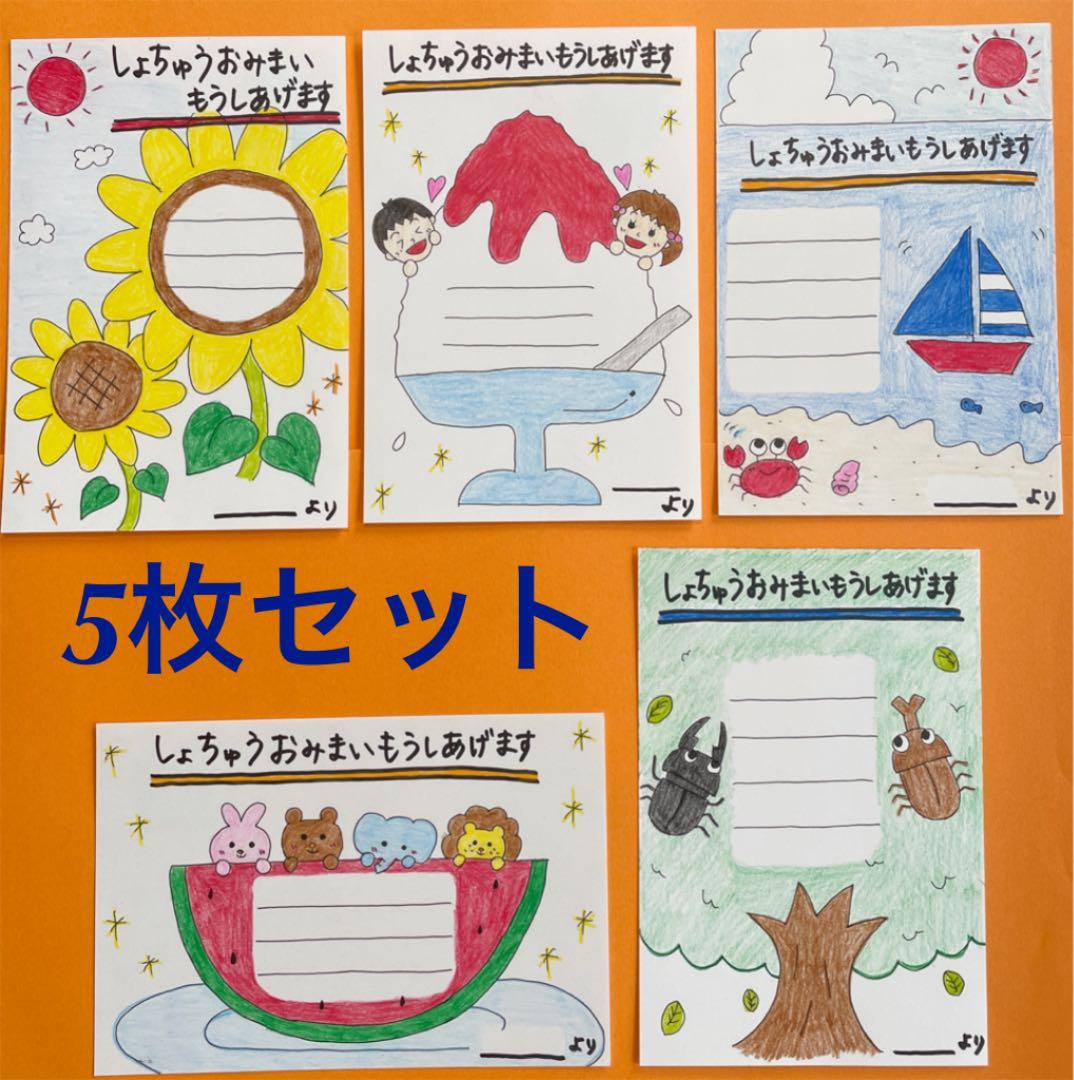 しょちゅうおみまい
もうしあげます
より
しょちゅうおみまいもうしあげます
より
しょちゅうおみまいもうしあげます
より
5枚セット
しょちゅうおみまいもうしあげます
より
しょちゅうおみまいもうしあげます
より